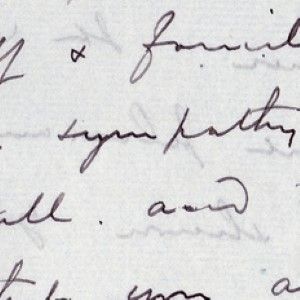 & famil
sympathy
all. and
you a